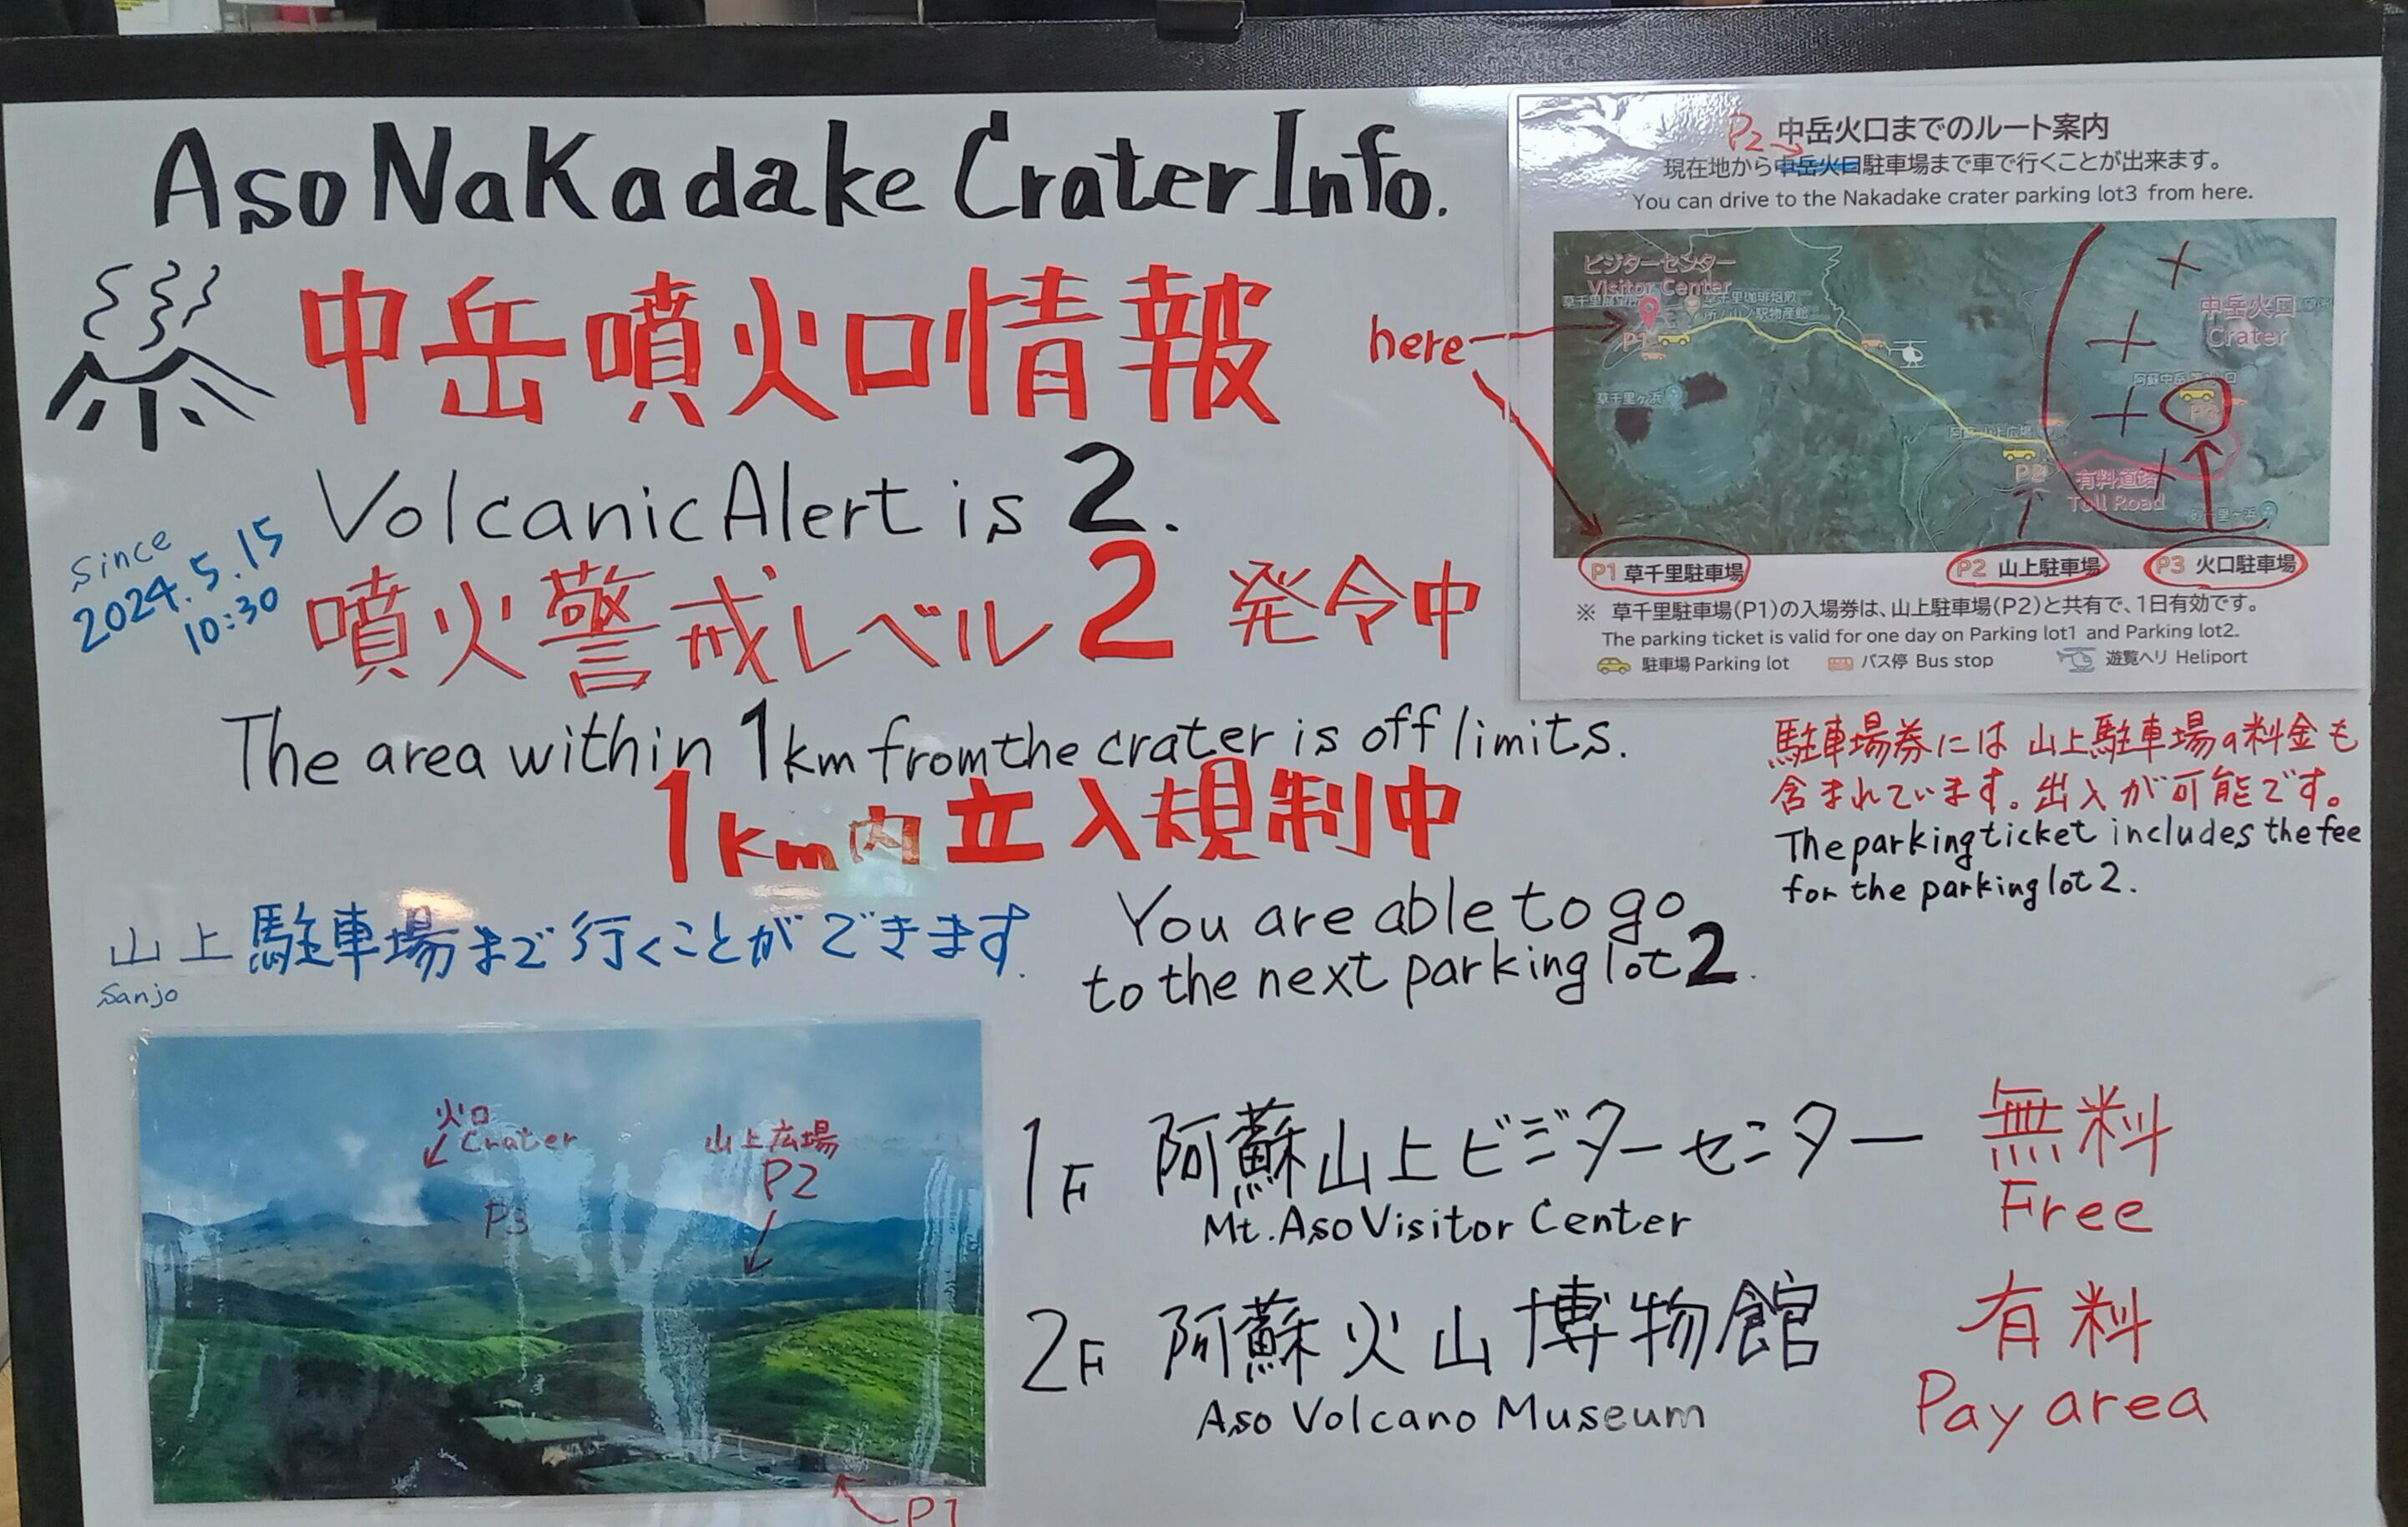 Aso Nakadake Crater Info.
中岳噴火口情報
Volcanic Alert is 2.
since
2024.5.15
10:30
噴火警戒レベル2 発令中
The area within 1km from the crater is off limits.
1km内立入規制中
山上駐車場まで行くことができます.
Sanjo
You are able to go
to the next parking lot 2.
火口
Crater
P3
山上広場
P2
P1
1F 阿蘇山上ビジターセンター 無料
Mt. Aso Visitor Center Free
2F 阿蘇火山博物館 有料
Aso Volcano Museum Pay area
here
P2 中岳火口までのルート案内
現在地から中岳火口駐車場まで車で行くことが出来ます。
You can drive to the Nakadake crater parking lot3 from here.
ビジターセンター
Visitor Center
P1
草千里ヶ浜
中岳火口
Crater
P2
有料道路
Toll Road
P1 草千里駐車場
P2 山上駐車場
P3 火口駐車場
※ 草千里駐車場(P1)の入場券は、山上駐車場(P2)と共有で、1日有効です。
The parking ticket is valid for one day on Parking lot1 and Parking lot2.
駐車場 Parking lot バス停 Bus stop 遊覧ヘリ Heliport
駐車場券には山上駐車場の料金も
含まれています。出入が可能です。
The parking ticket includes the fee
for the parking lot 2.